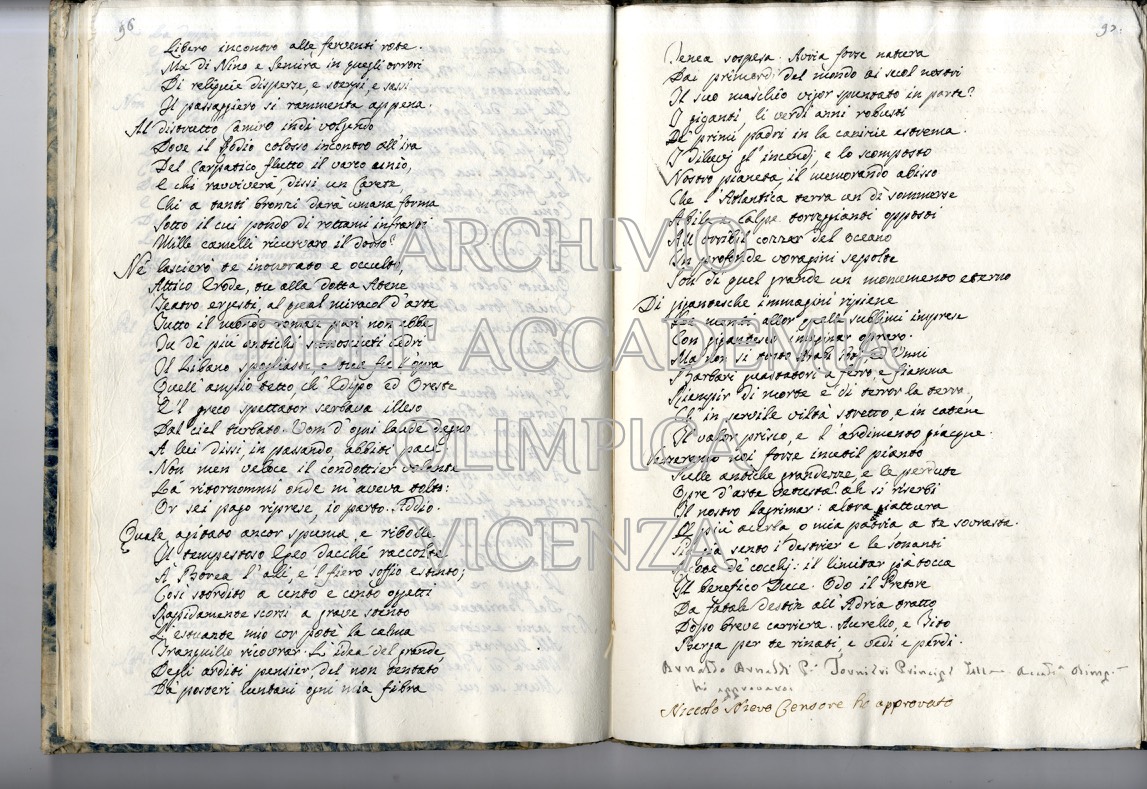 96
Libero incontro alle ferventi rote.
Ma di Nino e Semira in quegli orrori
Di reliquie disperse, e sterpi, e sassi
Il passaggiero si rammenta appena.
Al distrutto Camiro indi volgendo
Dove il Rodio colosso incontro all'ira
Del Carpatico flutto il varco
E chi ravviverà dissi un Carete,
Chi a tanti bronzi darà umana forma
Sotto il cui pondo di rottami infranti
Mille camelli ricurvaro il dorso?
Nè lascierò te inonorato e occulto,
Attico Erode, tu alla dotta Atene
Teatro ergesti, al qual miracol d'arte
Tutto il mondo roman pari non ebbe
Da de più antichi sconosciuti cedri
Il Libano spogliassi
Quell'ampio tetto, ch'Edipo ed Oreste
E'l greco spettator serbava illeso
Dal ciel turbato. Uom d'ogni laude degno
A lui dissi, in passando, abbiti pace.
Non men veloce il condottier volante
Là ritornommi onde m'aveva tolto:
Or sei pago riprese, io parto. Addio.
Quale agitato ancor spuma, e ribolle
Il tempestoso Egeo dacché raccolte
À Borea l'ali, e'l fiero soffio estinto;
Così stordito a cento e cento oggetti
Rapidamente scorsi a grave stento
L'estuante mio cor potè la calma
Tranquillo ricovrar. L'idea del grande,
Degli arditi pensier, del non tentato
Da posteri lontani ogni mia fibra
97.
Tenea sospesa. Avria forse natura
Dai primordi del mondo ai secol nostri
Il suo maschio vigor spuntato in parte?
I giganti, li verdi anni robusti
De' primi padri in la canizie estrema.
I diluvj gl'incendj, e lo scomposto
Nostro pianeta, il memorando abisso
Che l'Atlantica terra un dì sommerse
Abila e Calpe torreggianti opposti
All'orribil cozzar del oceano
In profonde voragini sepolte
Son di quel grande un monumento eterno
Di gigantesche immagini ripiene
Le menti allor quelle sublimi imprese
Con gigantesco inspirar oprero.
Ma non sì tosto Arabi Goti ed Unni
Barbari guastatori a ferro, e fiamma
Riempir di morte e di terror la terra,
Ch'in servile viltà stretto, e in catene
Il valor prisco, e l'ardimento giacque.
Verseremo noi forse inutil pianto
Sulle antiche grandezze, e le perdute
Opre d'arte vetusta? ah si riserbi
Il nostro lagrimar: altra iattura
E più acerba o mia patria a te sovrasta.
Di già sento i destrier e le sonanti
Rote de' cocchj: il limitar già tocca
Il benefico Duce. Odo il Pretore
Da fatale destin all'Adria tratto
Dopo breve carriera. Aurelio, e Tito
Berga per te rinati, e vedi e perdi.
Arnaldo Arnaldi Pº Tornieri Principe dell Accadª Olimp.
hò approvato
Niccolò Nievo Censore hò approvato
ARCHIVIO
DELLE ACCADEMIA
OLIMPICA
VICENZA